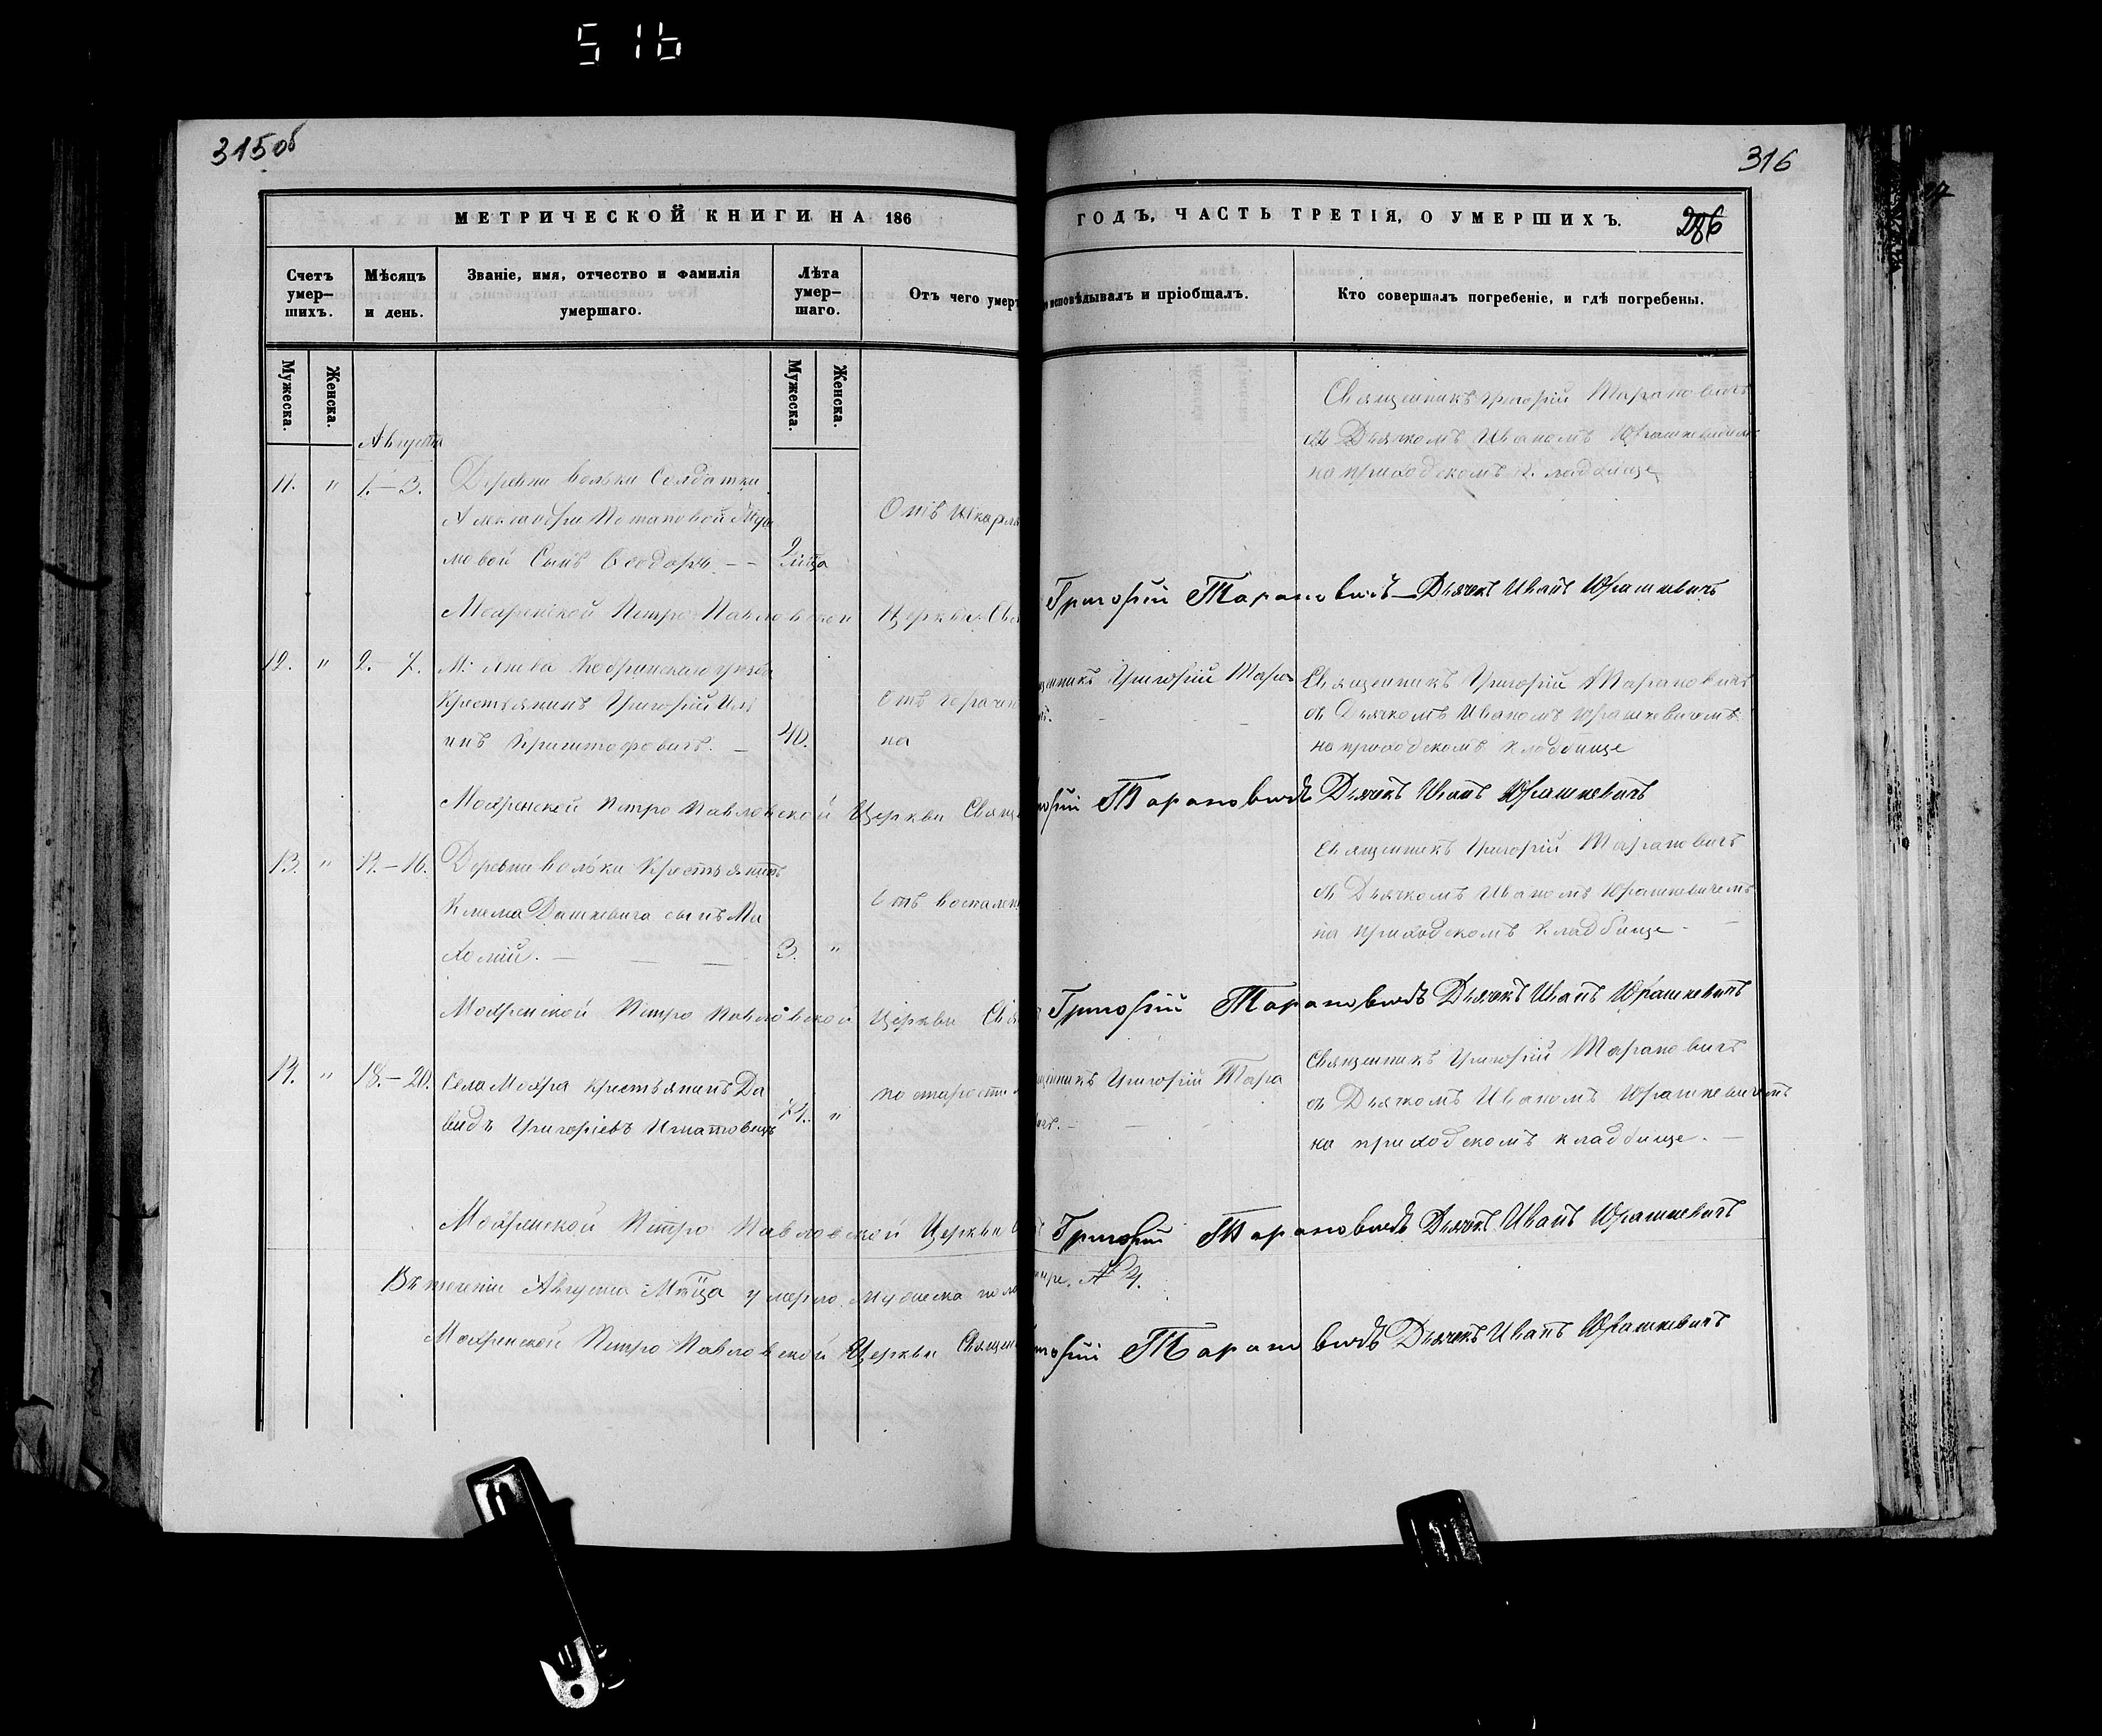 516
315об
316
МЕТРИЧЕСКОЙ КНИГИ НА 186
ГОДЪ, ЧАСТЬ ТРЕТІЯ, О УМЕРШИХЪ.
286
Счетъ умер-
шихъ.
Мѣсяцъ
и день.
Званіе, имя, отчество и фамилія
умершаго.
Лѣта
умер-
шаго.
Отъ чего умер
исповѣдывалъ и пріобщалъ.
Кто совершалъ погребеніе, и гдѣ погребены.
Мужеска.
Женска.
Мужеска.
Женска.
Августа
11. " 1.–3. Деревни Вольки Солдатки
Потаповой
мовой Сынъ Ѳеодоръ – –
Отъ
Священникъ Григорій Тарановичъ
съ Дьячкомъ Иваномъ Юрашкевичемъ
на приходскомъ кладбище
Мохренской Петро-Павловской Церкви Свя
Григорій Тарановичъ – Дьячекъ Иванъ Юрашкевичъ
12. " 2.–7. М: Кобринскаго уѣзда
Крестьянинъ Григорій
инъ Криштофовичъ. – 40.
Отъ
на
щенникъ Григорій Тара
Священникъ Григорій Тарановичъ
съ Дьячкомъ Иваномъ Юрашкевичемъ
на приходскомъ кладбище
Мохренской Петро Павловской Церкви Свящ
Тарановичъ Дьячекъ Иванъ Юрашкевичъ
13. " –16. Деревни Вольки Крестьянинъ
Дашкевича сынъ Ма
3. "
Отъ воспален
Священникъ Григорій Тарановичъ
съ Дьячкомъ Иваномъ Юрашкевичемъ
на приходскомъ кладбище –
Мохренской Петро Павловской Церкви Свя
Григорій Тарановичъ Дьячекъ Иванъ Юрашкевичъ
14. " 18.–20. Села Мохра крестьянинъ Да
видъ Григоріевъ Игнатовичъ
74. "
по старости
щенникъ Григорій Тара
Священникъ Григорій Тарановичъ
съ Дьячкомъ Иваномъ Юрашкевичемъ
на приходскомъ кладбище. –
Мохренской Петро Павловской Церкви
Григорій Тарановичъ Дьячекъ Иванъ Юрашкевичъ
Въ теченіи Августа М-ца умерло мужеска пола
тыре. № 4.
Мохренской Петро Павловской Церкви Священ
Тарановичъ Дьячекъ Иванъ Юрашкевичъ